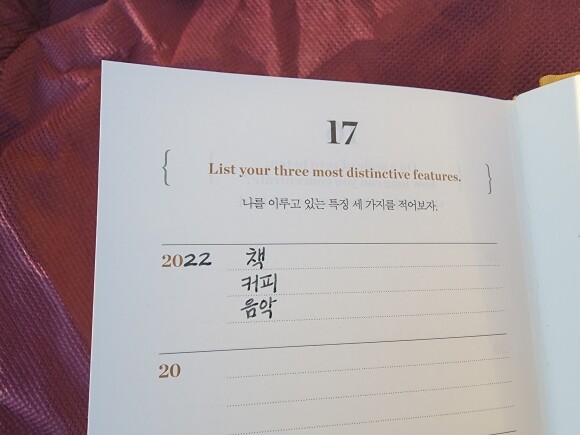 17
{ List your three most distinctive features. }
나를 이루고 있는 특징 세 가지를 적어보자.
2022 책
커피
음악
20